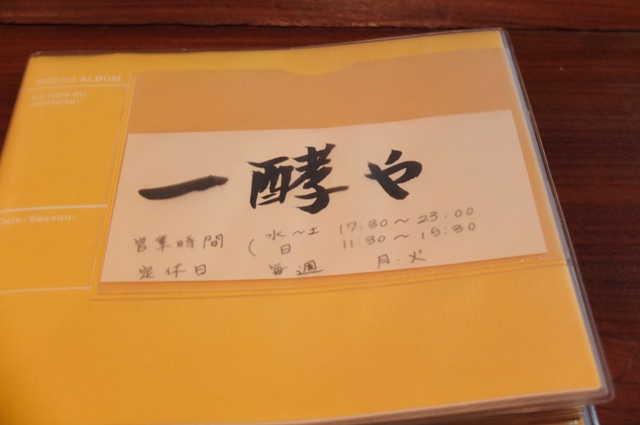 PHOTO ALBUM
Le titre du
contenu:
Date/Season:
一酵や
営業時間 ( 水〜土 17:30〜23:00
日 11:30〜15:30
定休日 毎週 月.火